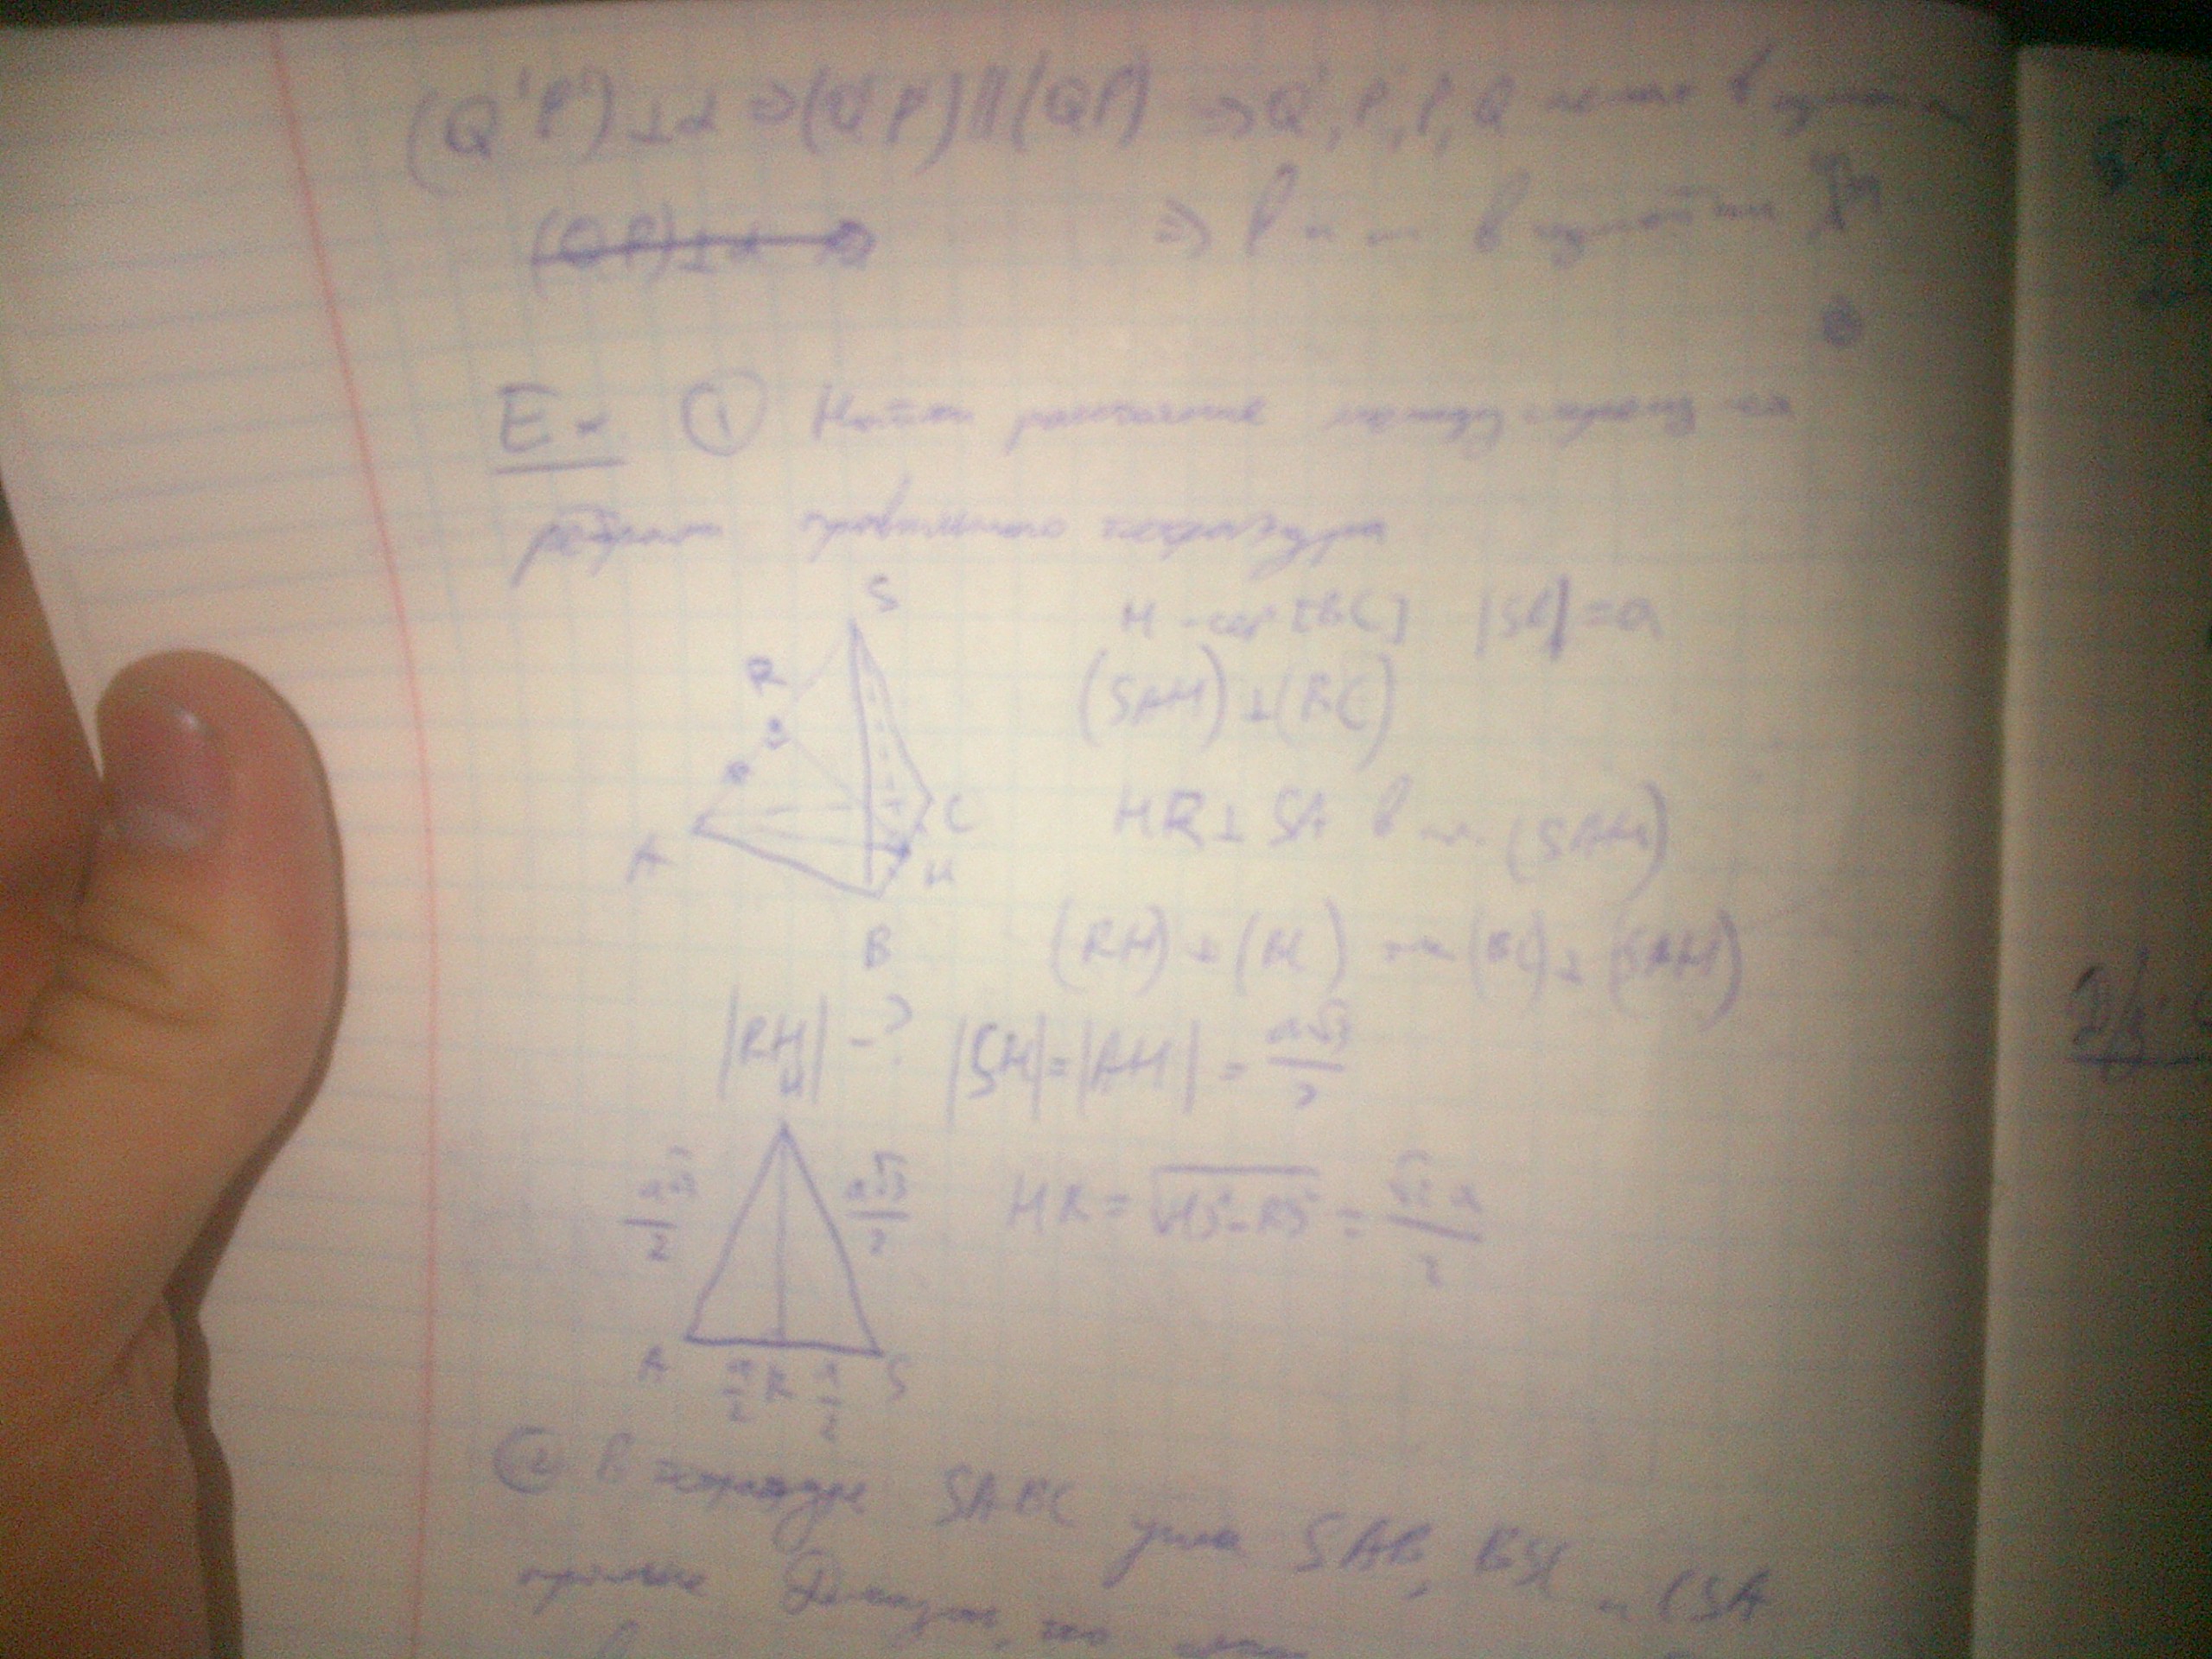 (Q'P') ⊥ α ⇒ (Q'P') || (QP) ⇒ Q', P', P, Q лежат в одной
(QP) ⊥ α ⇒
⇒ l и m в одной пл
Ex ① Найти расстояние между скрещ-ся
ребрами правильного тетраэдра
S
H - сер [BC] |SB| = a
R
(SAH) ⊥ (BC)
HR ⊥ SA в пл. (SAH)
C
A
H
B
(RH) ⊥ (BC) (BC) ⊥ (SAH)
|RH| - ? |SH| = |AH| = a√3/2
H
a√3/2 a√3/2 HR = √HS²-RS² = √2 a/2
A a/2 R a/2 S
② В тетраэдре SABC углы SAB, BSC и CSA
прямые Доказать, что